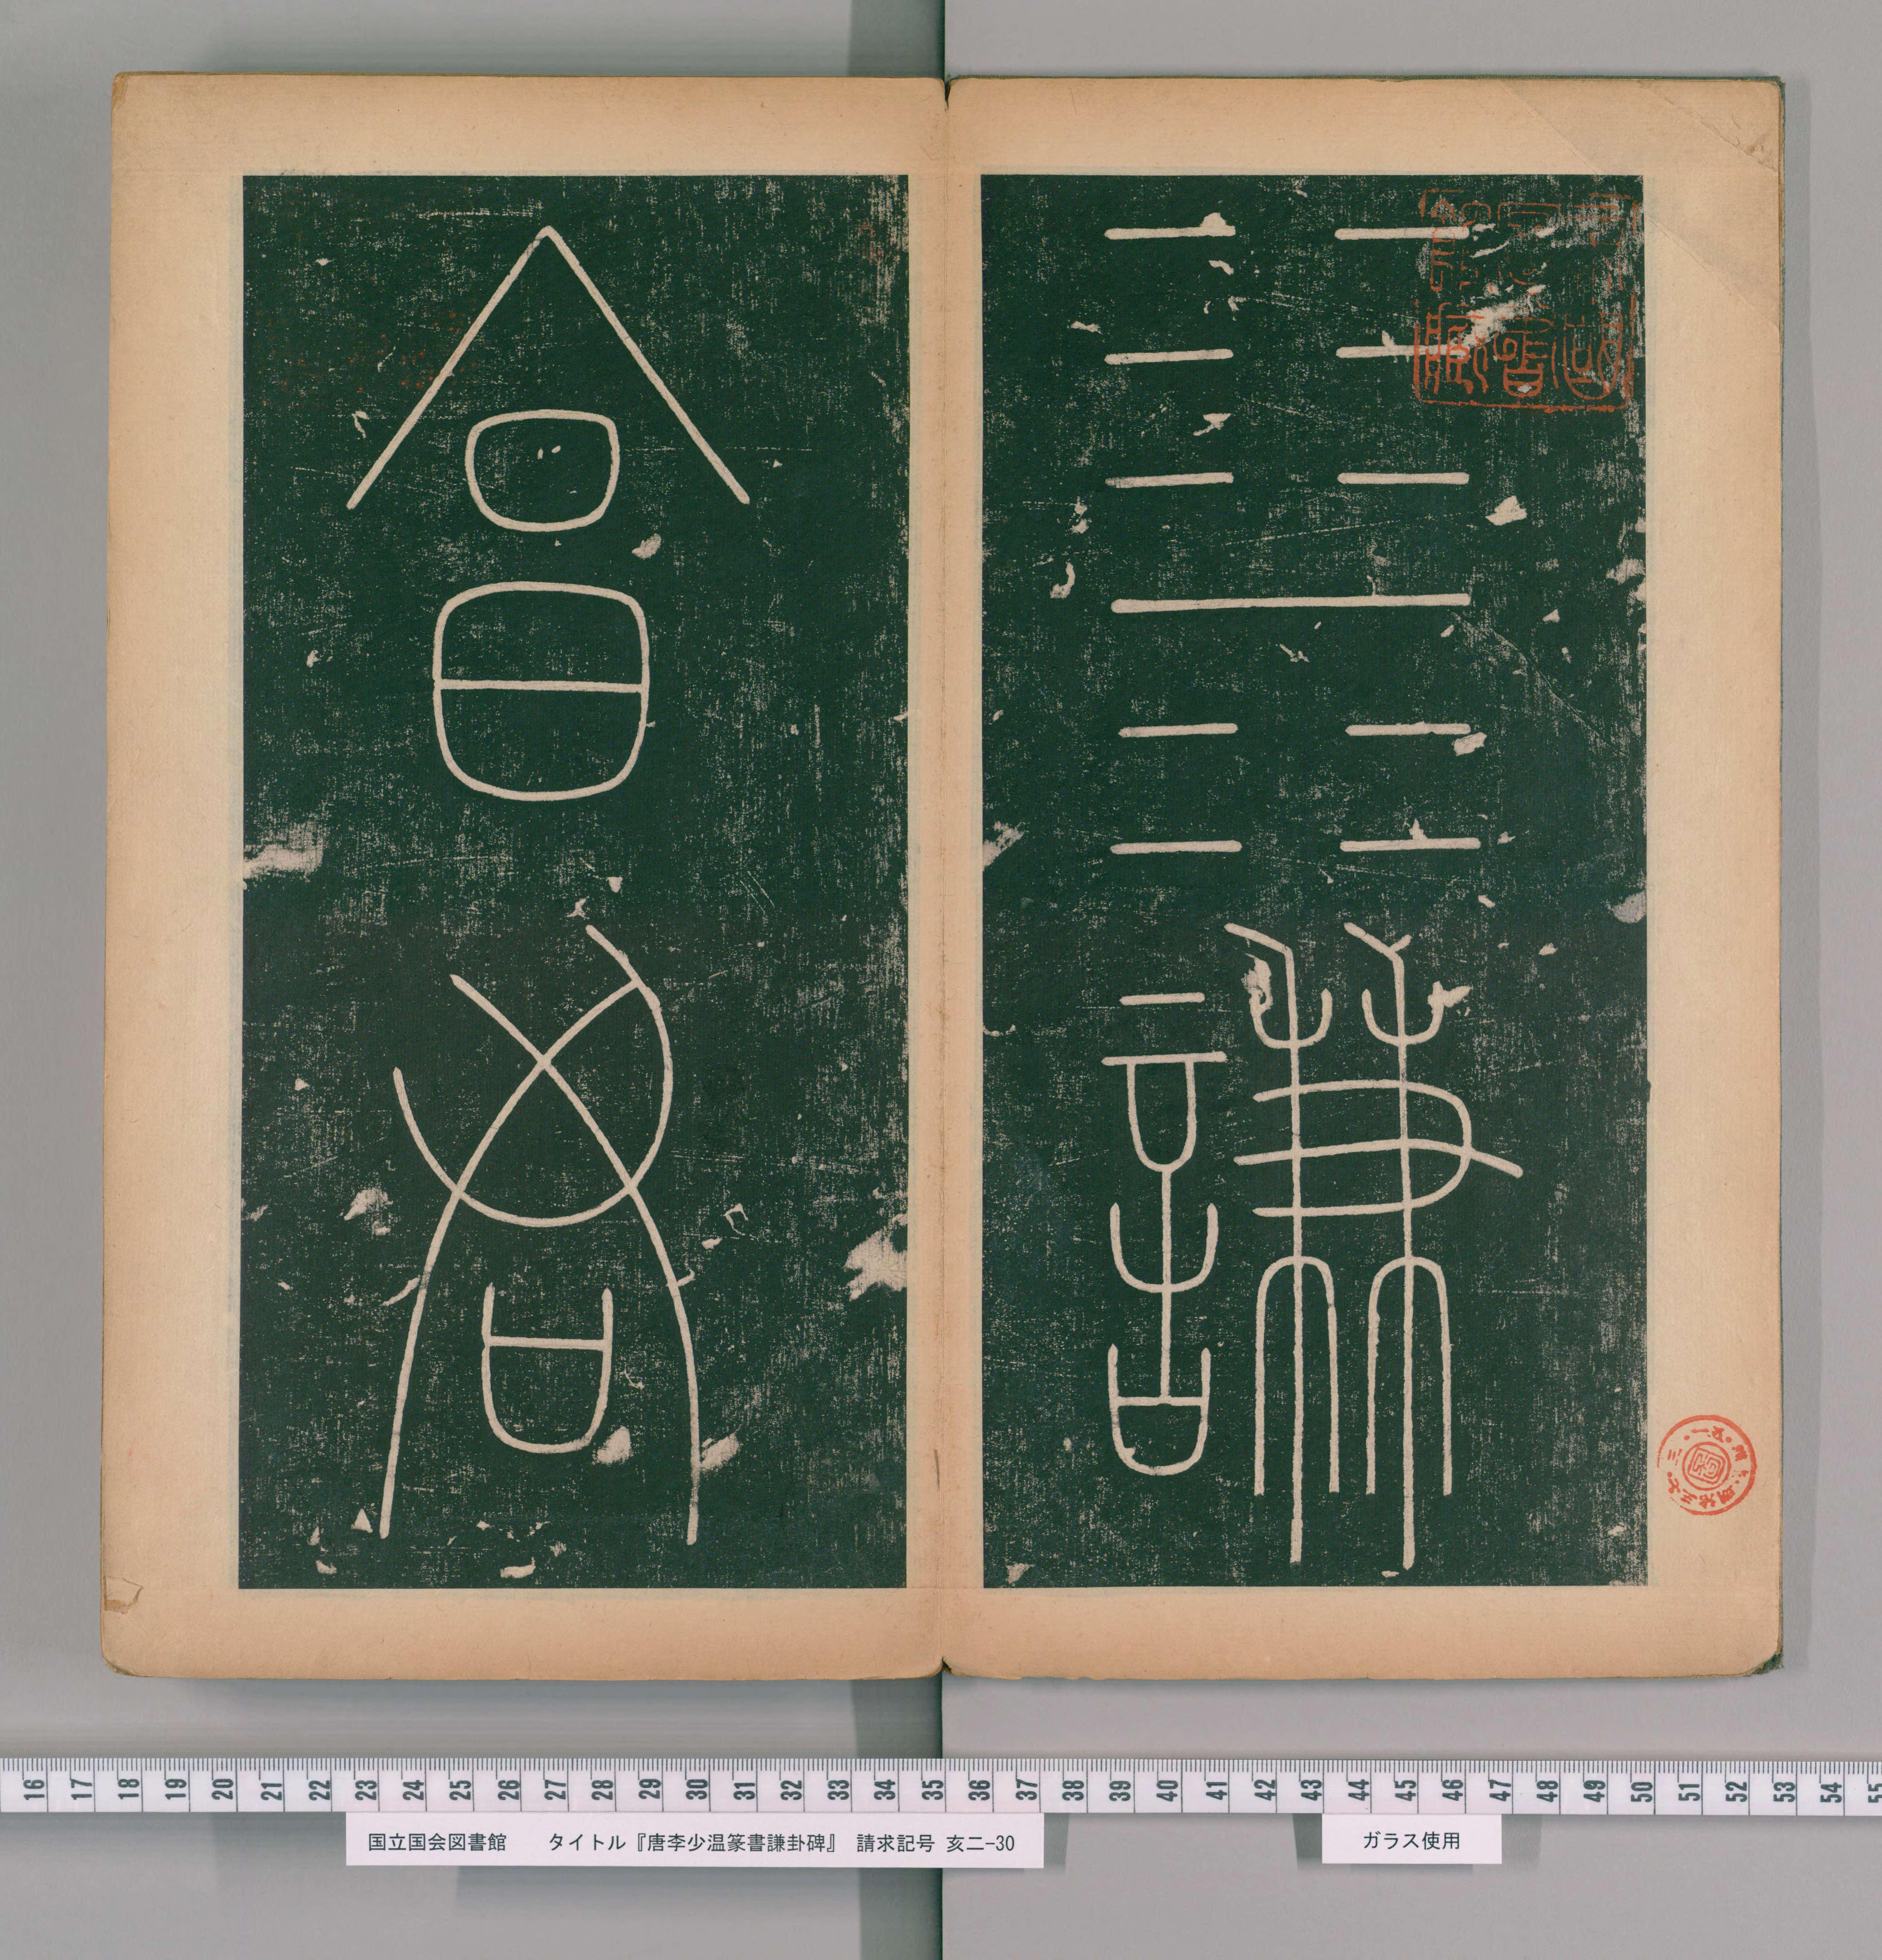 ䷎謙
亯君
帝國圖書館藏
16 17 18 19 20 21 22 23 24 25 26 27 28 29 30 31 32 33 34 35 36 37 38 39 40 41 42 43 44 45 46 47 48 49 50 51 52 53 54 55
国立国会図書館 タイトル『唐李少温篆書謙卦碑』 請求記号 亥二-30
ガラス使用